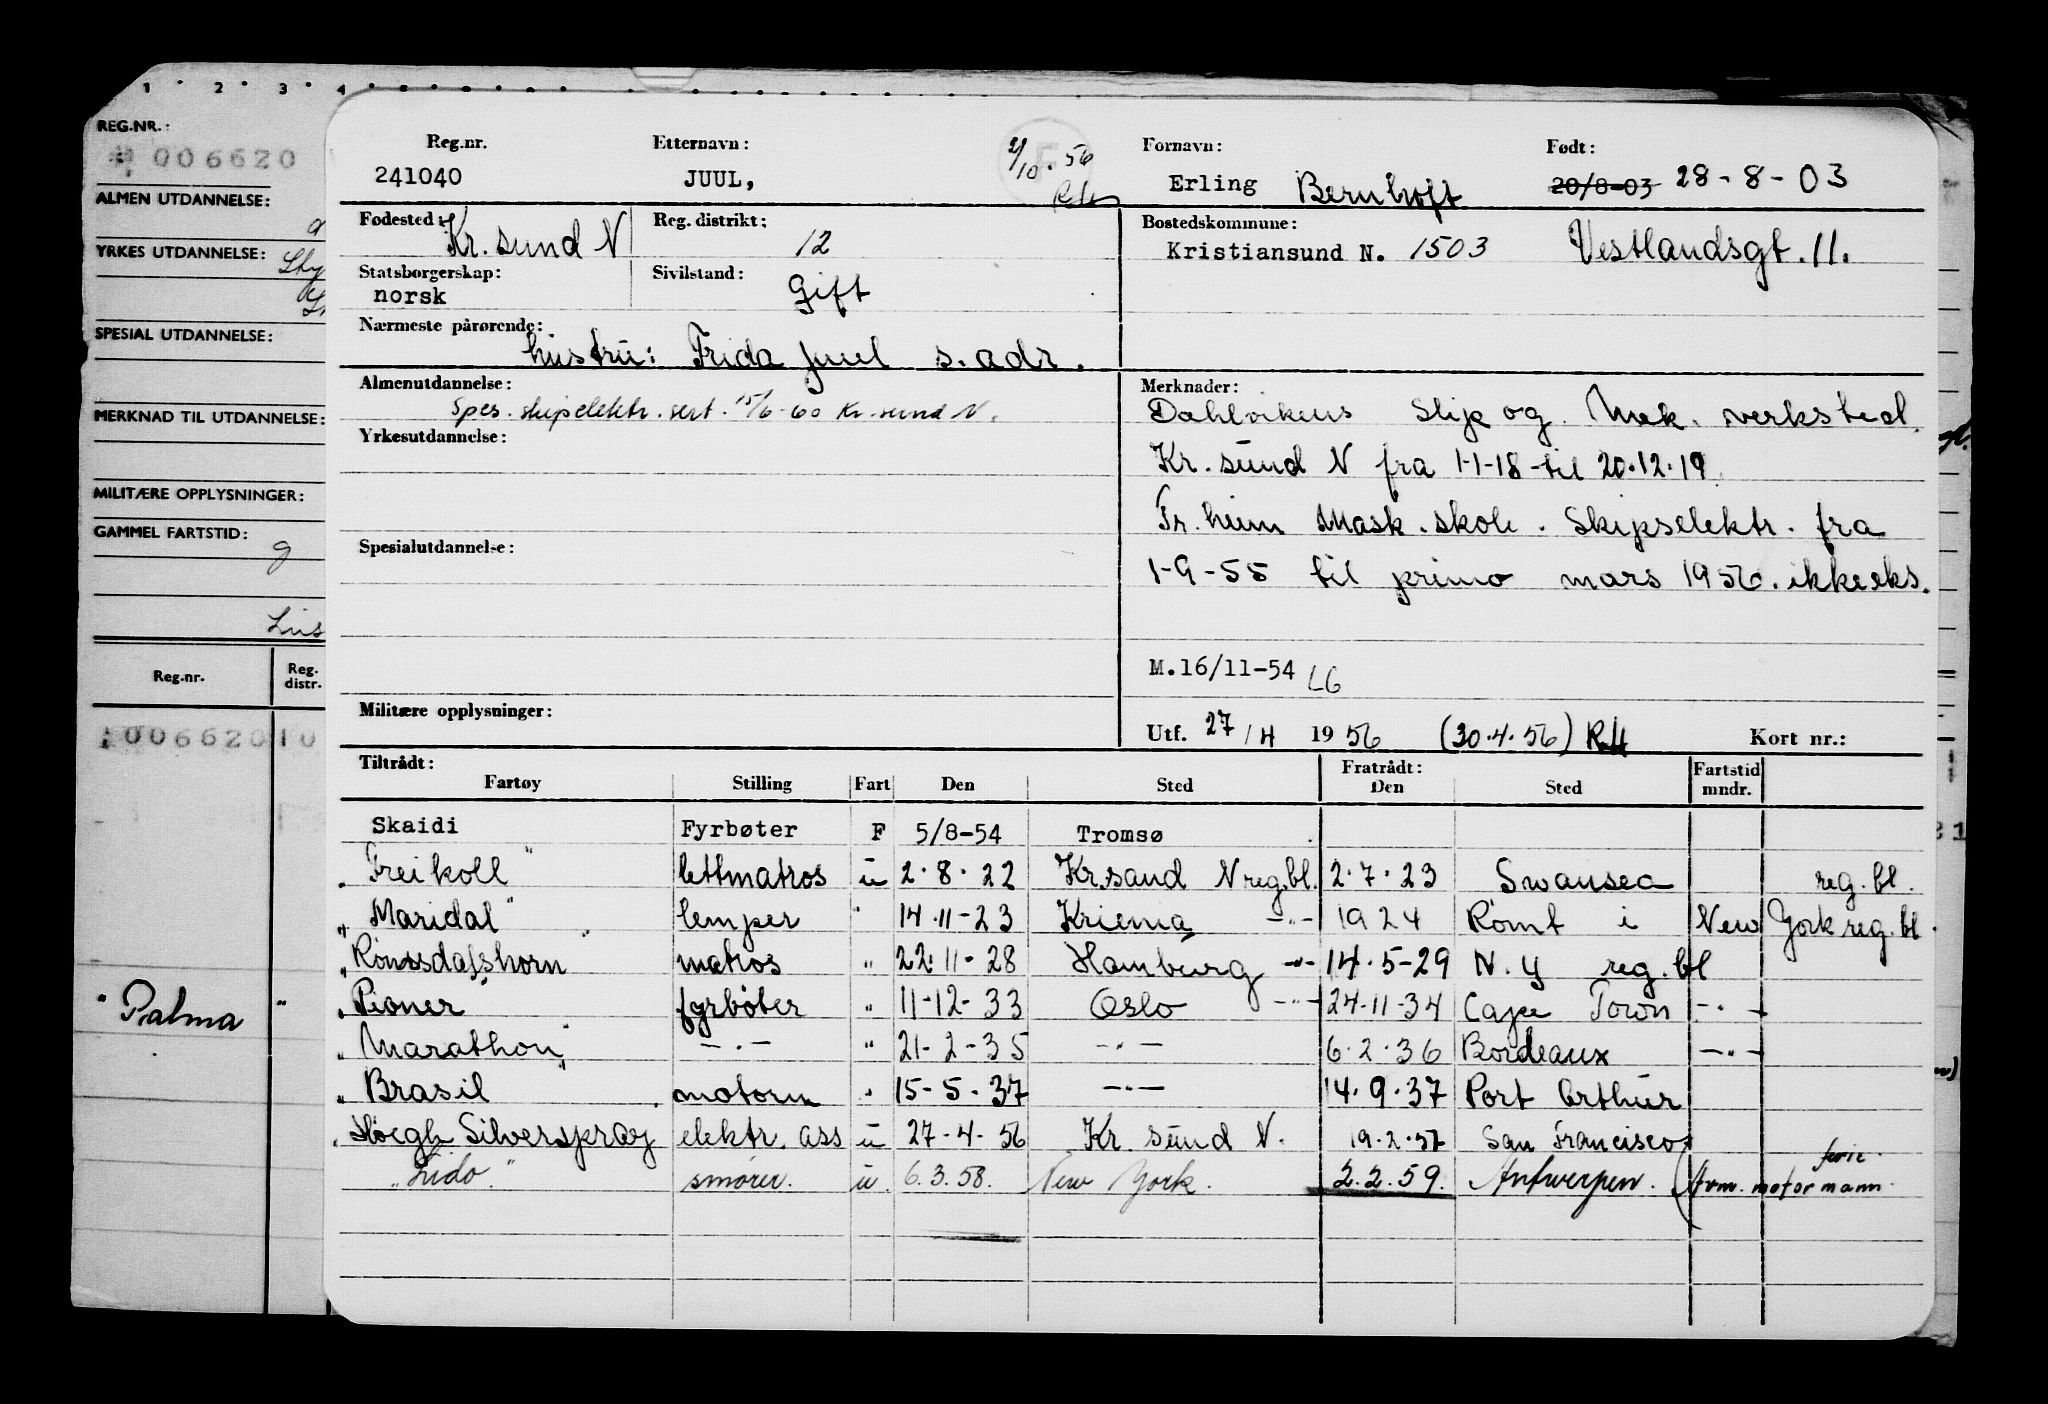 1 2 3 4
REG.NR.:
006620
ALMEN UTDANNELSE:
YRKES UTDANNELSE:
SPESIAL UTDANNELSE:
MERKNAD TIL UTDANNELSE:
MILITÆRE OPPLYSNINGER:
GAMMEL FARTSTID:
Reg.nr. Reg. distr.
00662010
"Palma "
Reg.nr. Etternavn: 2/10.56 Fornavn: Født:
241040 JUUL, Erling Bernhoft 20/8-03 28-8-03
Fødested: Kr.sund N Reg. distrikt: 12 Bostedskommune:
Kristiansund N. 1503 Vestlandsgt. 11.
Statsborgerskap: Sivilstand:
norsk Gift
Nærmeste pårørende:
hustru: Frida Juul s. adr.
Almenutdannelse: Merknader:
Spes. skipselektr. sert. 15/6-60 Kr.sund N. Dahlvikens Slip og Mek. verksted.
Yrkesutdannelse:
Kr.sund N fra 1-1-18 til 20.12.19.
Tr.heim Mask.skole. Skipselektr. fra
Spesialutdannelse:
1-9-55 til primo mars 1956. ikke eks.
M.16/11-54 LG
Militære opplysninger:
Utf. 27/4 1956 (30.4.56) R.H Kort nr.:
Tiltrådt: Fratrådt: Fartstid
Fartøy Stilling Fart Den Sted Den Sted mndr.
Skaidi Fyrbøter F 5/8-54 Tromsø
"Freikoll" lettmatros u 2.8.22 Kr.sund N reg.bl. 2.7.23 Swansea reg.bl.
"Maridal" lemper " 14.11-23 -"- 1924 Rømt i New York reg.bl.
"Romsdalshorn" matros " 22.11-28 Hamburg -"- 14.5-29 N.Y reg.bl
"Pioner" fyrbøter " 11-12-33 Oslo -"- 24-11-34 Cape Town -"-
"Marathon" -"- " 21-2-35 -"- 6.2.36 Bordeaux -"-
"Brasil motorm " 15-5.37 -"- 14.9.37 Port Arthur
"Høegh Silverspray elektr. ass u 27-4-56 Kr.sund N. 19.2.57 San Francisco
"Lido" smører. u. 6.3.58. New York. 2.2.59. Antwerpen. (Avm. motormann. ferie.